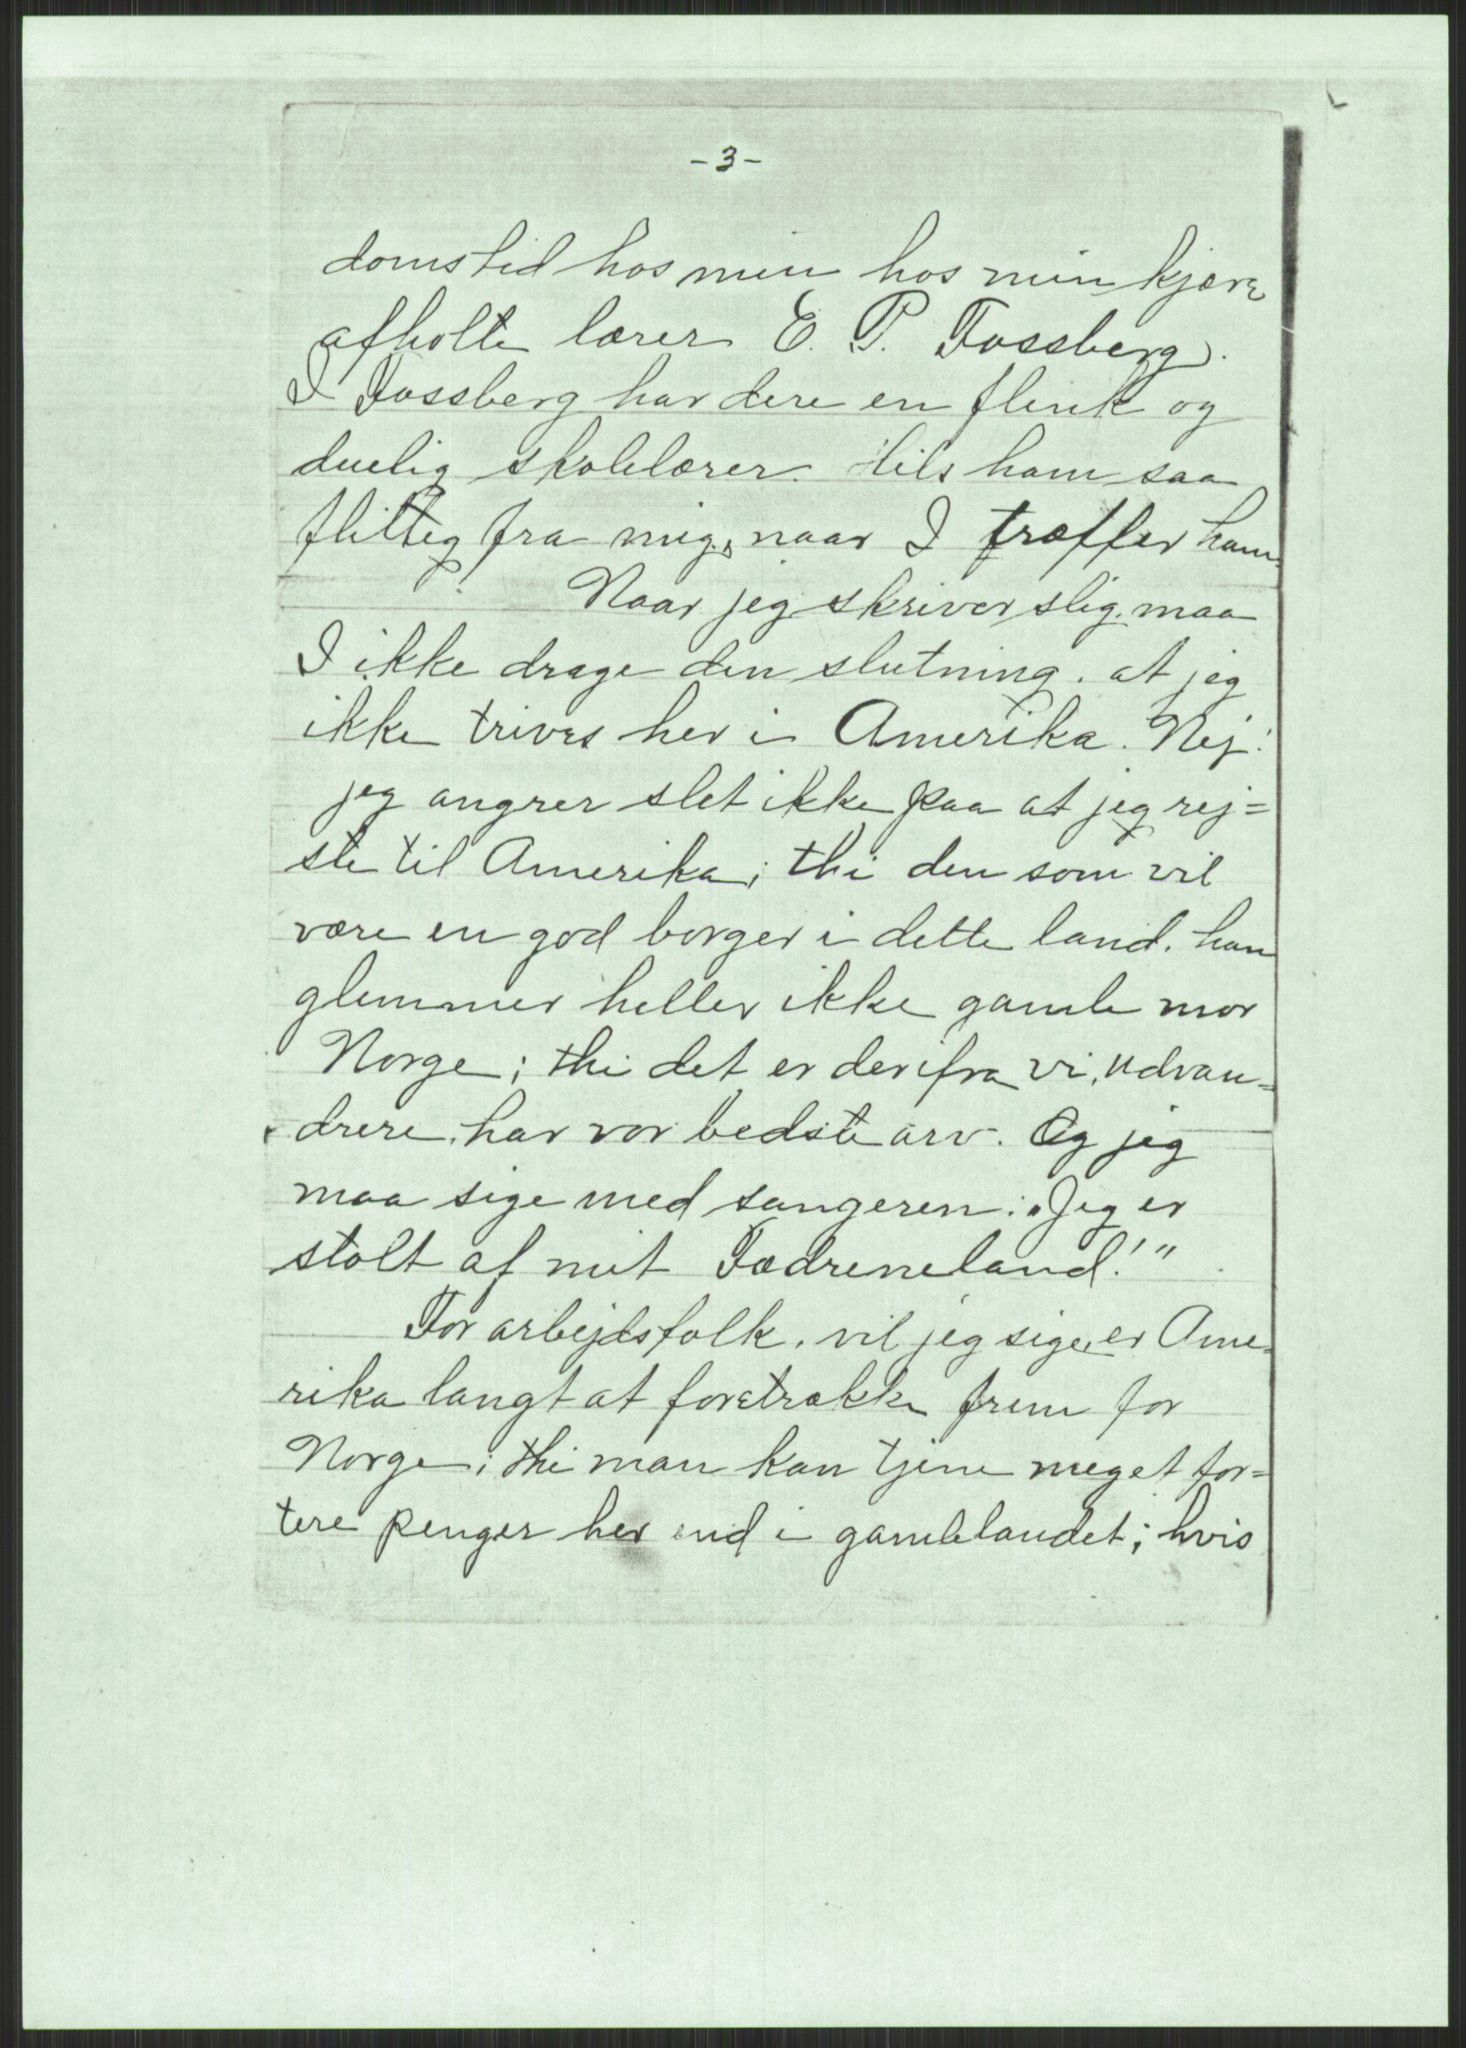 -3-
domstid hos min hos min kjære
afholte lærer E. P. Fossberg.
I Fossberg har dere en flink og
duelig skolelærer. Hils ham saa
flittig fra mig, naar I træffer ham.
Naar jeg skriver slig, maa
I ikke drage den slutning, at jeg
ikke trives her i Amerika. Nej!
jeg angrer slet ikke paa at jeg rej=
ste til Amerika; thi den som vil
være en god borger i dette land, han
glemmer heller ikke gamle mor
Norge; thi det er derifra vi, udvan=
drere, har vor bedste arv. Og jeg
maa sige med sangeren: „Jeg er
stolt af mit Fædreneland!"
For arbejdsfolk, vil jeg sige, er Ame=
rika langt at foretrække frem for
Norge; thi man kan tjene meget for=
tere penger her end i gamlelandet; hvis